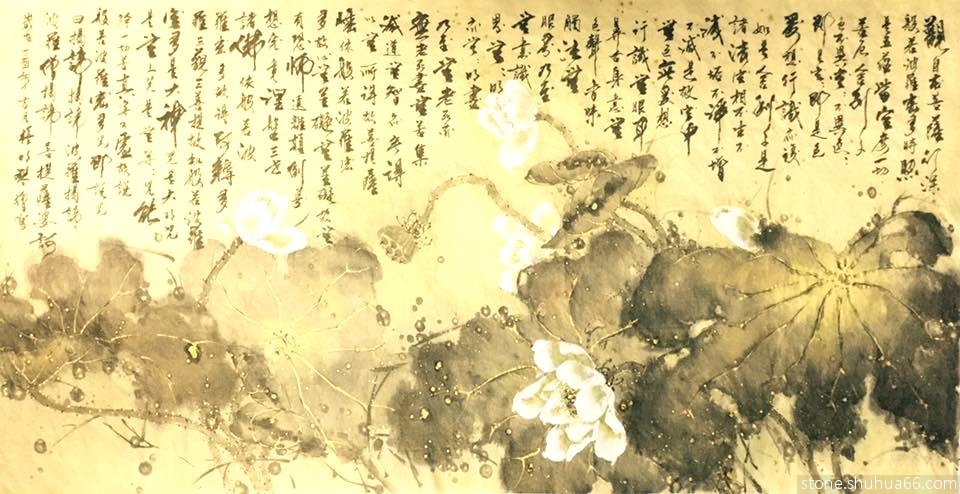 觀自在菩薩行深
般若波羅蜜多時照
見五蘊皆空度一切
苦厄舍利子
色不異空空不異色
即是空即是色
受想行識亦復
如是舍利子是
諸法空相不生不
滅不垢不淨不增
不減是故空中
無色無受想
行識無眼耳
鼻舌身意無
色聲香味
觸法無
眼界乃至
無意識
界無無明
亦無無明盡
乃至無老死亦
無老死盡無苦集
滅道無智亦無得
以無所得故菩提薩
埵依般若波羅蜜
多故心無罣礙無罣礙故無
有恐怖遠離顛倒夢
想究竟涅槃三世
諸佛依般若波
羅蜜多故得阿耨多
羅三藐三菩提故知般若波羅
蜜多是大神咒是大明咒
是無上咒是無等等咒能
除一切苦真實不虛故說
般若波羅蜜多咒即說咒
曰揭諦揭諦波羅揭諦
波羅僧揭諦菩提薩婆訶
stone.shuhua66.com